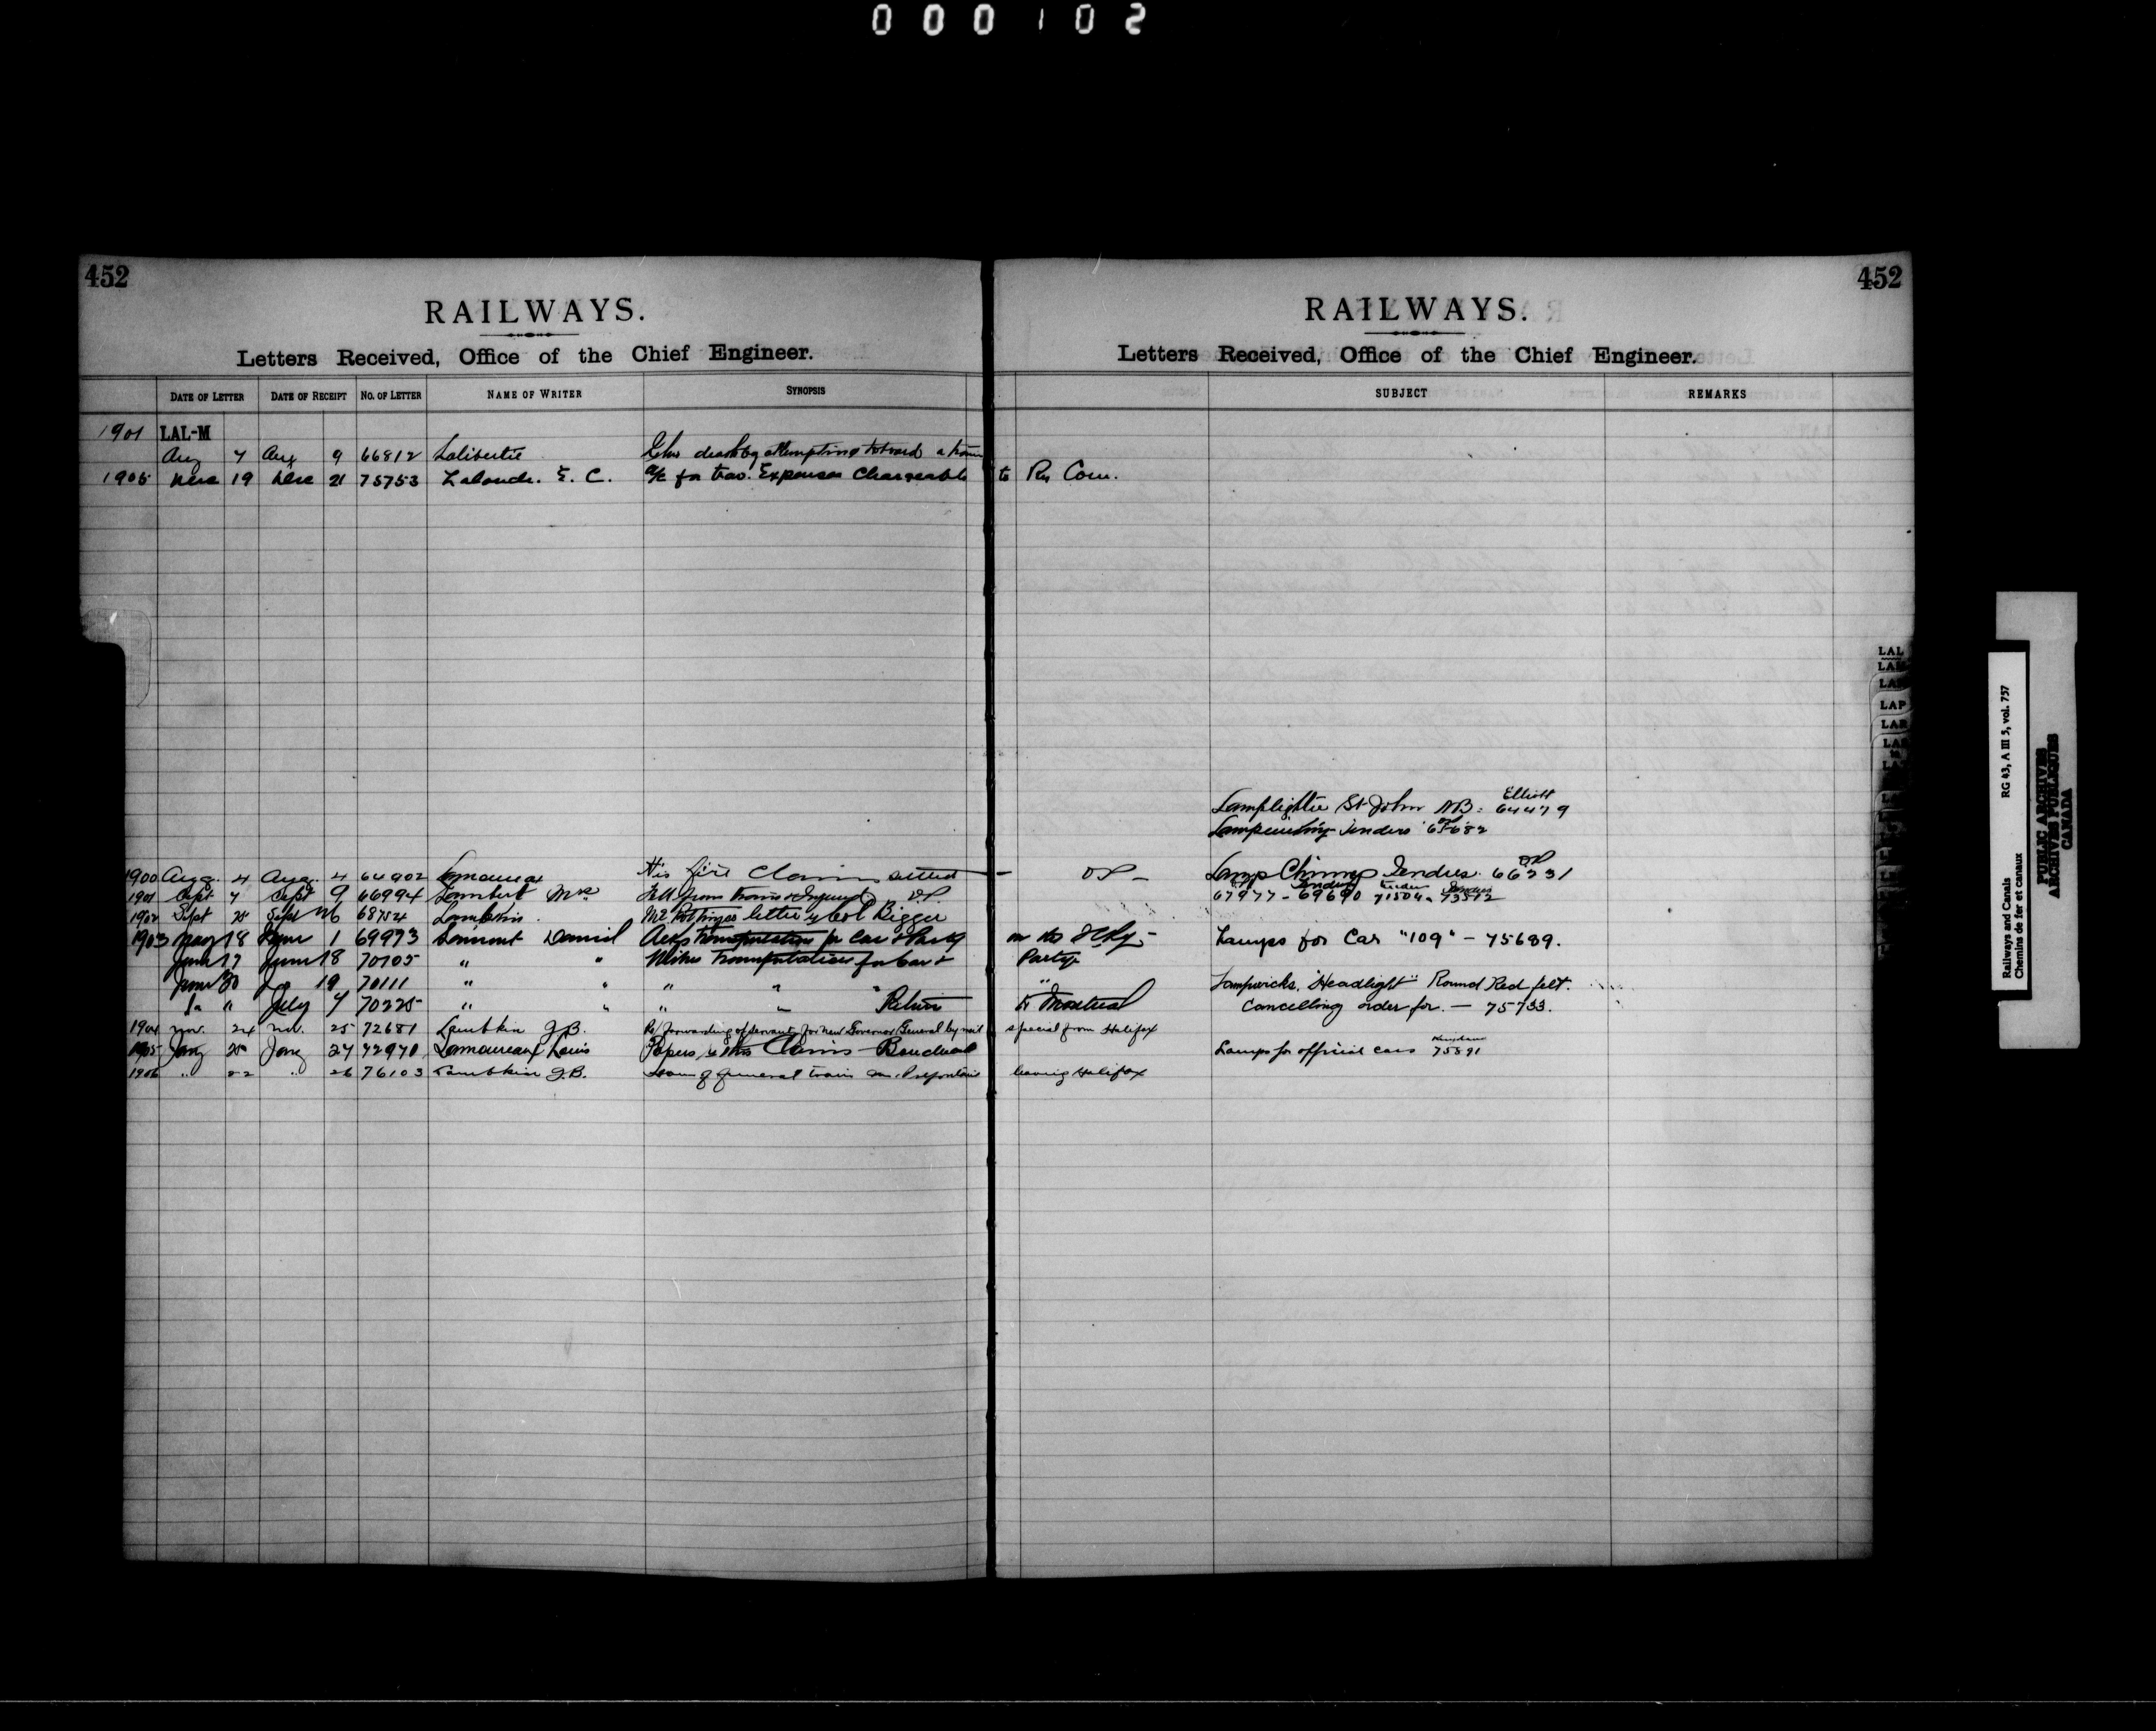 000102
452
RAILWAYS.
Letters Received, Office of the Chief Engineer.
DATE OF LETTER DATE OF RECEIPT NO. OF LETTER NAME OF WRITER SYNOPSIS
1901 LAL-M
Aug 7 Aug 9 66812 Laliberte death by attempting to board a train
1905 Dec 19 Dec 21 75753 Lalonde. E. C. a/c for trav. Expenses Chargeable
1900 Aug. 4 Aug. 4 64902 Lamoureux His fire Claim settled
1901 Sept 7 Sept 9 66994 Lambert Mrs Fell from train & Injured OP
1902 Sept 25 Sept 26 68754 Lambkin. Mr Pottinger letter Col Bigger
1903 May 18 June 1 69973 Lamont Daniel Asks transportation for Car & Party
June 17 June 18 70105 " " Wishes transportation for Car &
June 30 19 70111 " " " " "
" July 7 70225 " " " " Return
1904 Nov. 24 Nov. 25 72681 Lambkin J.B. Re/ forwarding of servants for new Governor General by mail
1905 Jany 25 Jany 27 72970 Lamoureaux Louis Papers Claims
1906 " 22 " 26 76103 Lambkin J.B. general train
452
RAILWAYS.
Letters Received, Office of the Chief Engineer.
SUBJECT REMARKS
to Ry Com.
Elliott
Lamplighter St John N.B. 64479
Tenders
OP - Lamp Chimney Tenders. 66231
67977 - 69690 71504
on the Lamps for Car "109" - 75689.
Party
" Lampwicks, "Headlight" Round Red felt.
to Montreal Cancelling order for. - 75733.
special from Halifax
Lamps for official cars 75891
leaving Halifax
LAL
LAM
LAN
LAP
LAR
LAS
Railways and Canals RG 43, A III 5, vol. 757
Chemins de fer et canaux
PUBLIC ARCHIVES
ARCHIVES PUBLIQUES
CANADA